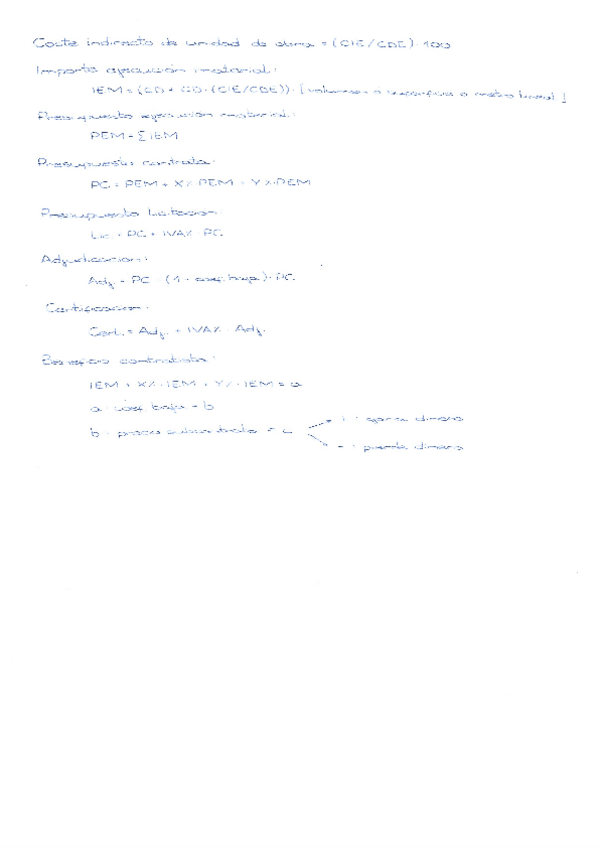 Coste indirecto de unidad de obra = (CIE/CDE) · 100
Importe ejecución material:
IEM = (CD + CD · (CIE/CDE)) · [volumen ó superficie o metro lineal]
Presupuesto ejecución material:
PEM = ∑ IEM
Presupuesto contrata:
PC = PEM + X% · PEM + Y% · PEM
Presupuesto licitación:
Lic = PC + IVA% · PC
Adjudicación:
Adj = PC · (1 - coef. baja) · PC
Certificación:
Cert. = Adj. + IVA% · Adj.
Beneficio contratista:
IEM + X% · IEM + Y% · IEM = a
a · coef baja = b
b - precio subcontrata = c
+ : gana dinero
- : pierde dinero